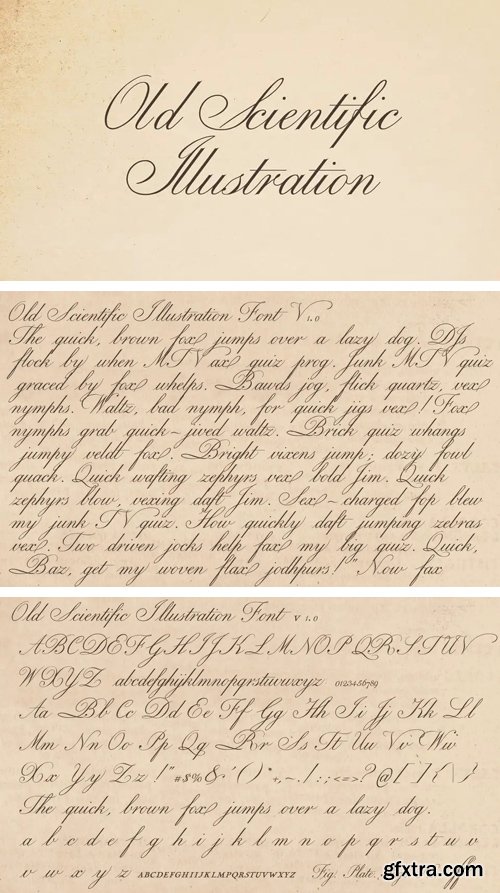 Old Scientific
Illustration
Old Scientific Illustration Font V 1.0
The quick, brown fox jumps over a lazy dog. DJs
flock by when MTV ax quiz prog. Junk MTV quiz
graced by fox whelps. Bawds jog, flick quartz, vex
nymphs. Waltz, bad nymph, for quick jigs vex! Fox
nymphs grab quick-jived waltz. Brick quiz whangs
jumpy veldt fox. Bright vixens jump; dozy fowl
quack. Quick wafting zephyrs vex bold Jim. Quick
zephyrs blow, vexing daft Jim. Sex-charged fop blew
my junk TV quiz. How quickly daft jumping zebras
vex. Two driven jocks help fax my big quiz. Quick,
Baz, get my woven flax jodhpurs! " Now fax
Old Scientific Illustration Font V 1.0
ABCDEFGHIJKLMNOPQRSTUV
WXYZ abcdefghijklmnopqrstuvwxyz 0123456789
Aa Bb Cc Dd Ee Ff Gg Hh Ii Jj Kk Ll
Mm Nn Oo Pp Qq Rr Ss Tt Uu Vv Ww
Xx Yy Zz !"#$%&'()*+,-./:;<=>?@[]{\}
The quick, brown fox jumps over a lazy dog.
a b c d e f g h i j k l m n o p q r s t u v
v w x y z ABCDEFGHIJKLMNOPQRSTUVWXYZ Fig. Plate.
gfxtra.com